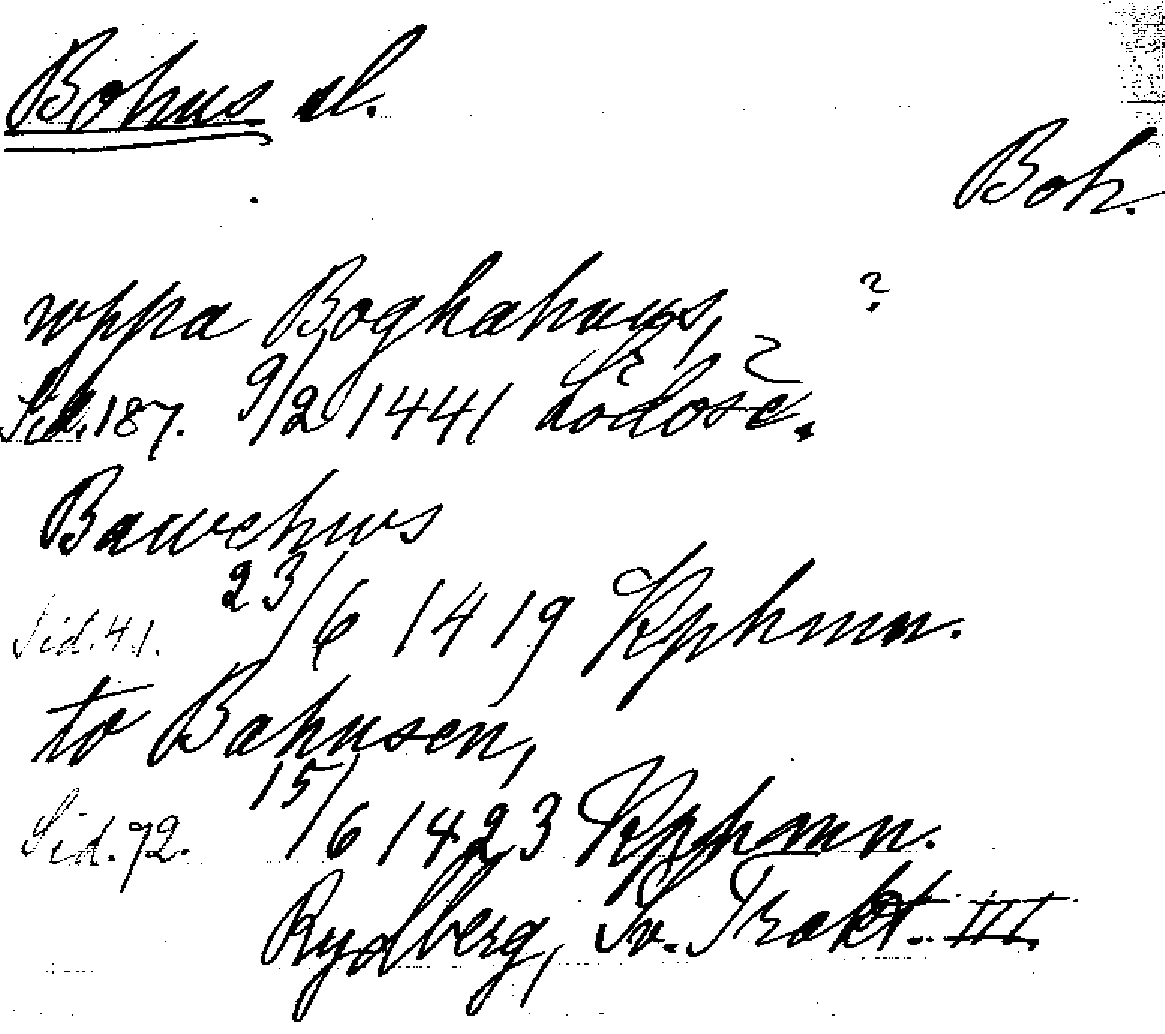 Bohus sl.
Boh.
uppa Boghahuus, ?
Sid. 187. 9/2 1441 Lödöse.
Bawehws
Sid. 41. 23/6 1419 Kphmn.
to Bahusen,
Sid. 72. 15/6 1423 Kphmn.
Rydberg, Sv. Trakt. III.